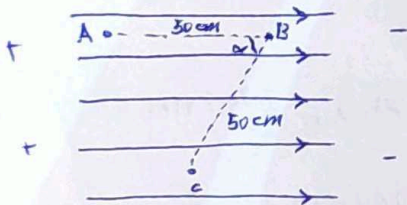 + A 50cm B -
α
50cm
+ -
c